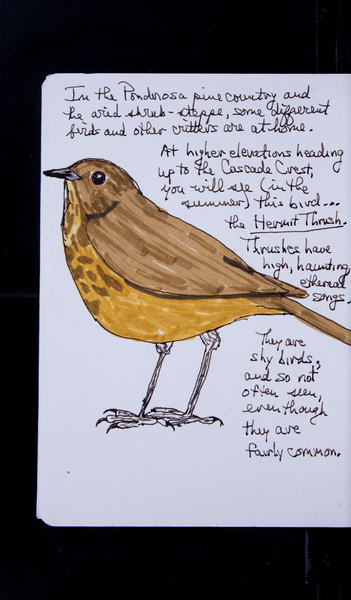 In the Ponderosa pine country and
he arid shrub-steppe, some different
birds and other critters are at home.
At higher elevations heading
up to the Cascade Crest,
you will see (in the
summer) this bird...
the Hermit Thrush.
Thrushes have
high, haunting,
ethereal
songs.
They are
shy birds,
and so not
often seen,
even though
they are
fairly common.